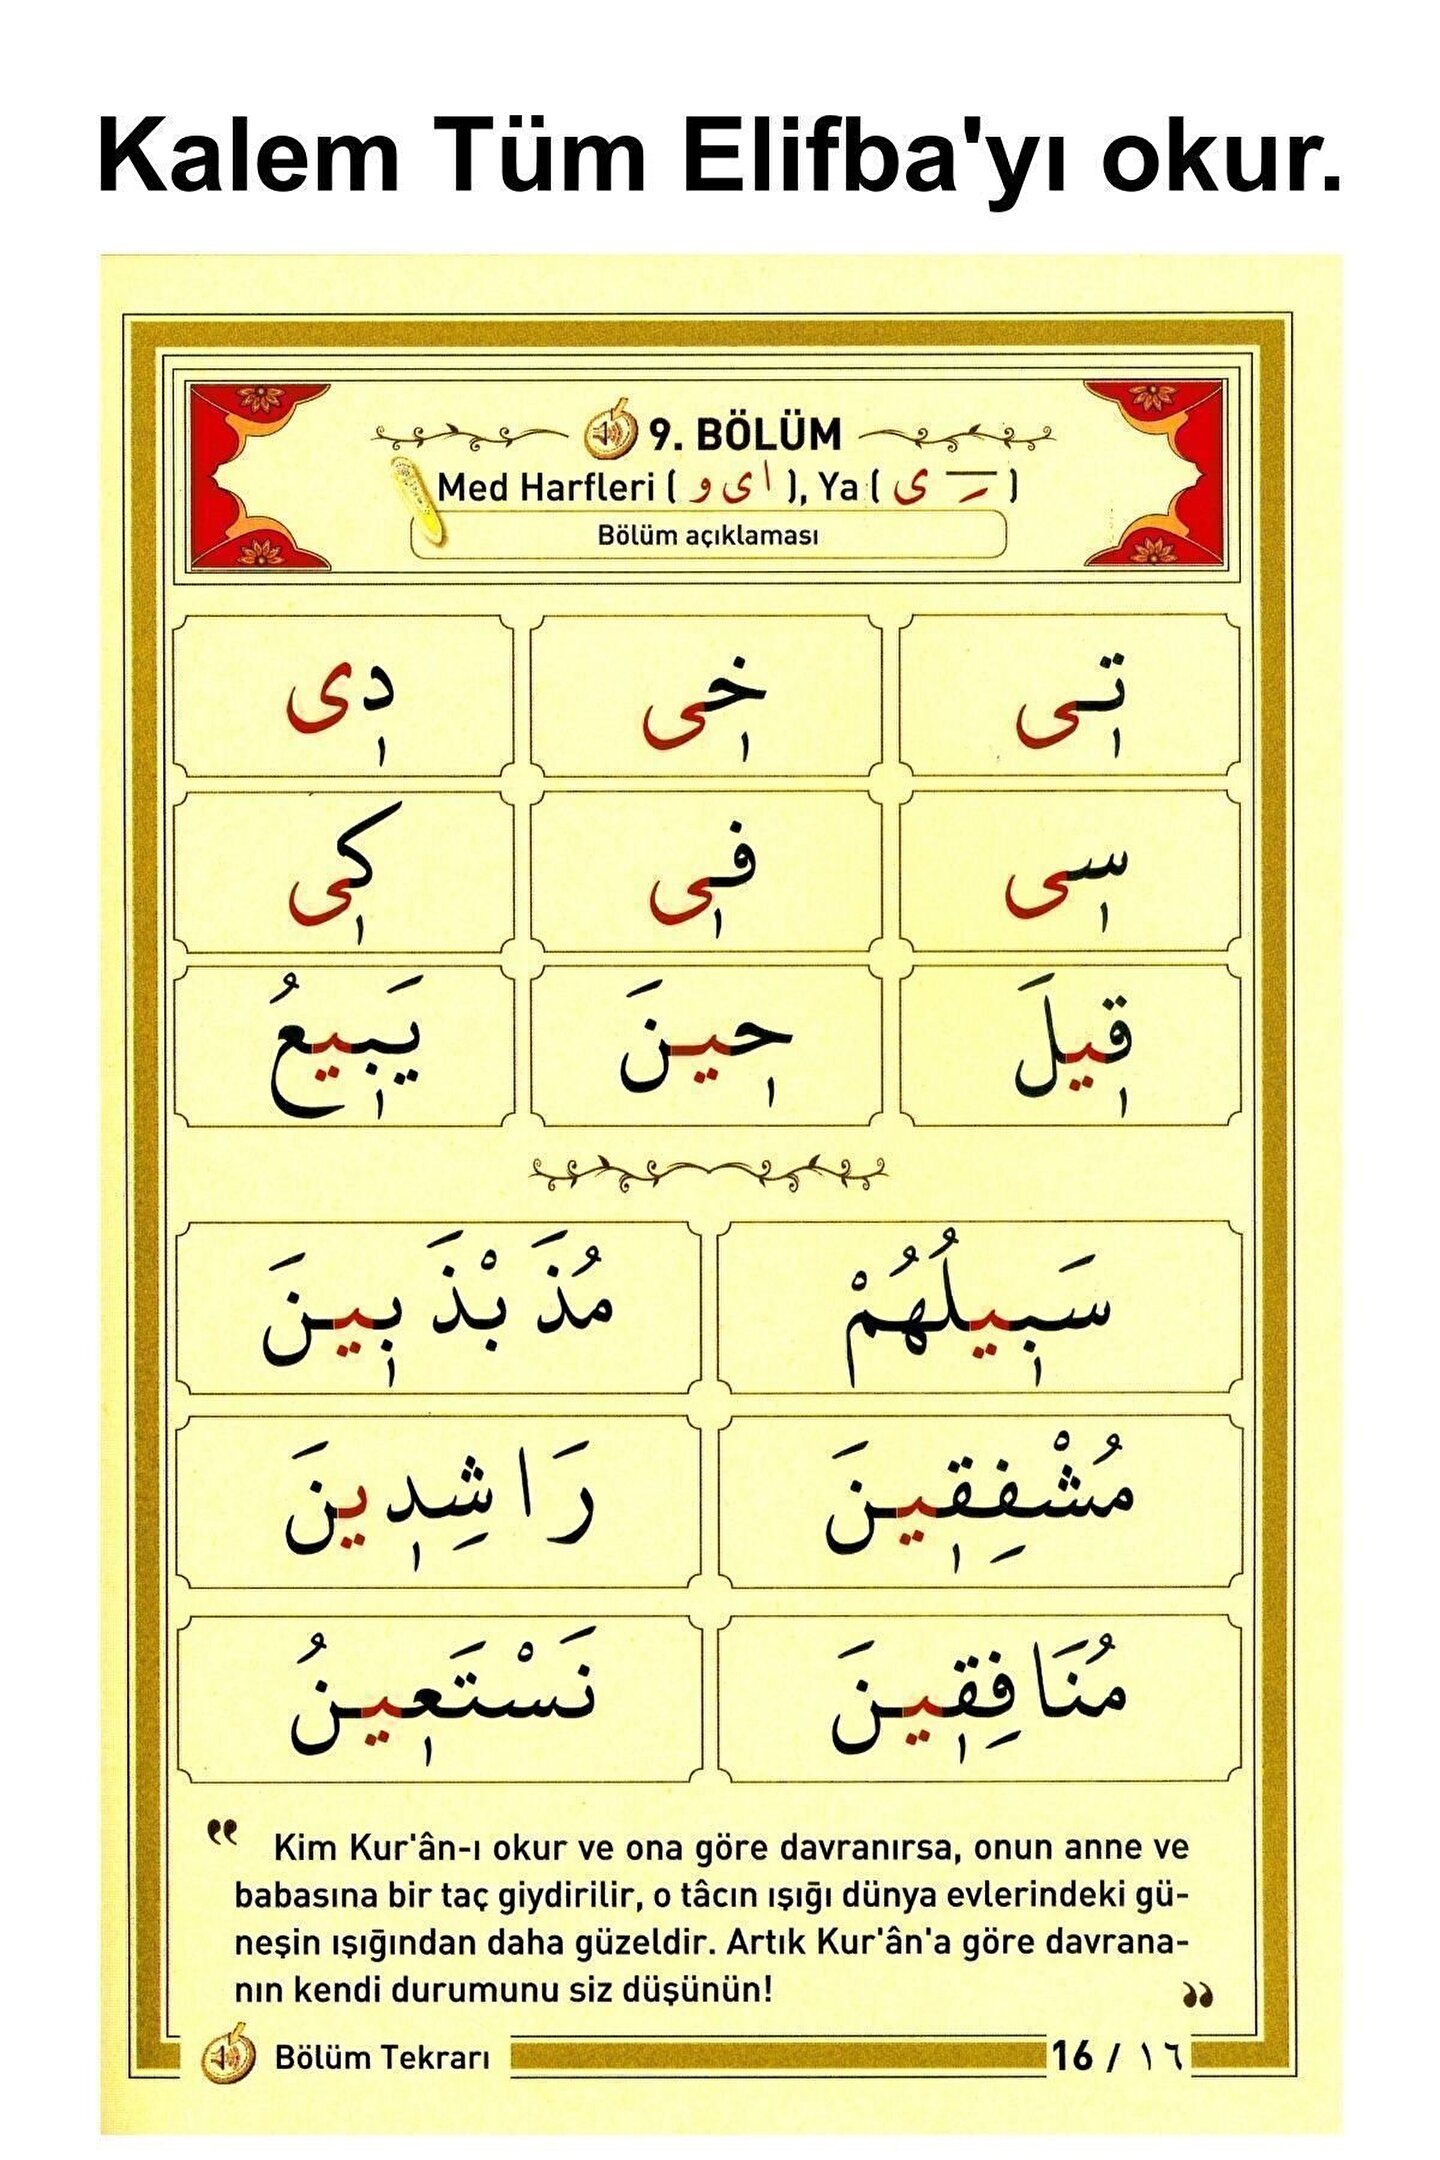 Kalem Tüm Elifba'yı okur.
9. BÖLÜM
Med Harfleri ( ا ى و ), Ya ( ـِ ى )
Bölüm açıklaması
تٖى خٖى دٖى
سٖى فٖى كٖى
قٖيلَ حٖينَ يَبٖيعُ
سَبٖيلُهُمْ مُذَبْذَبٖينَ
مُشْفِقٖينَ رَاشِدٖينَ
مُنَافِقٖينَ نَسْتَعٖينُ
" Kim Kur'ân-ı okur ve ona göre davranırsa, onun anne ve
babasına bir taç giydirilir, o tâcın ışığı dünya evlerindeki gü-
neşin ışığından daha güzeldir. Artık Kur'ân'a göre davrana-
nın kendi durumunu siz düşünün! "
Bölüm Tekrarı 16 / ١٦